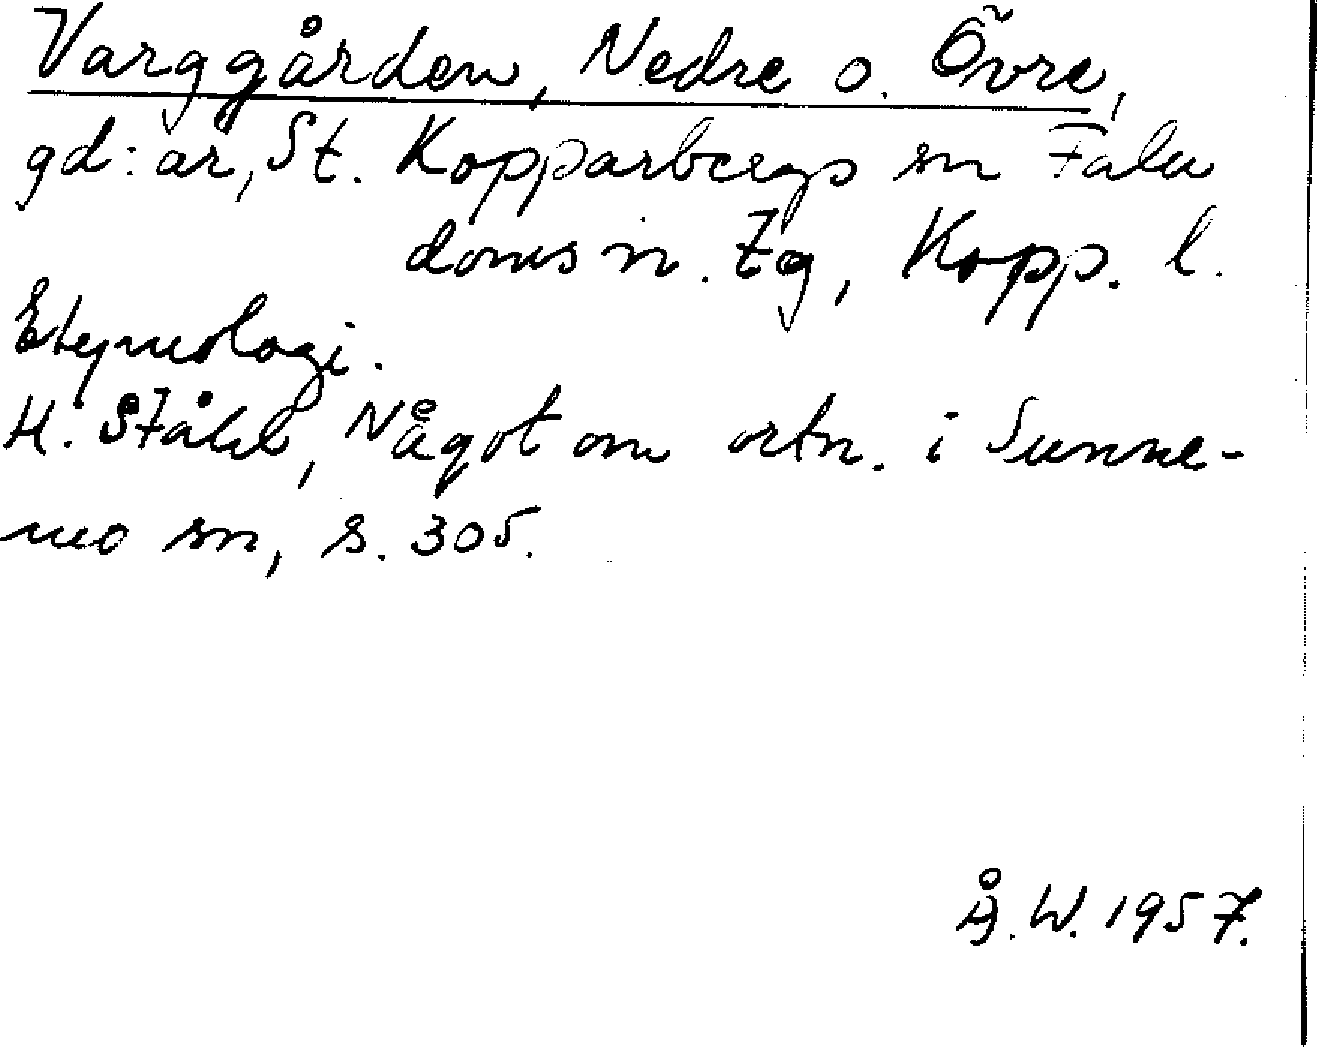 Varggården, Nedre o. Övre,
gd:ar, St. Kopparbergs sn Falu
doms n. tg, Kopp. l.
Etymologi.
H. Ståhl, Något om ortn. i Sunne-
mo sn, s. 305.
Å.W. 1957.